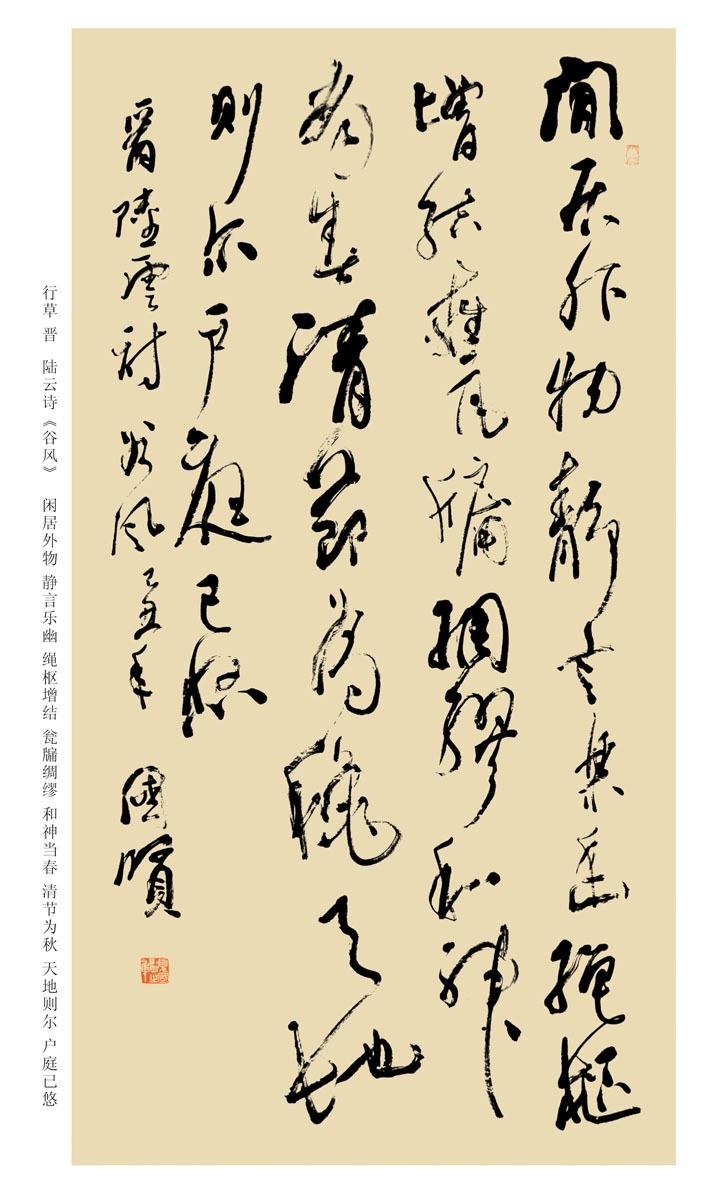 閒居外物靜言樂幽繩樞
增結甕牖綢繆和神
當春清節為秋天地
則尔戶庭已悠
晉陸雲詩谷風己丑年 國賢
行草 晋 陆云诗《谷风》 闲居外物 静言乐幽 绳枢增结 瓮牖绸缪 和神当春 清节为秋 天地则尔 户庭已悠